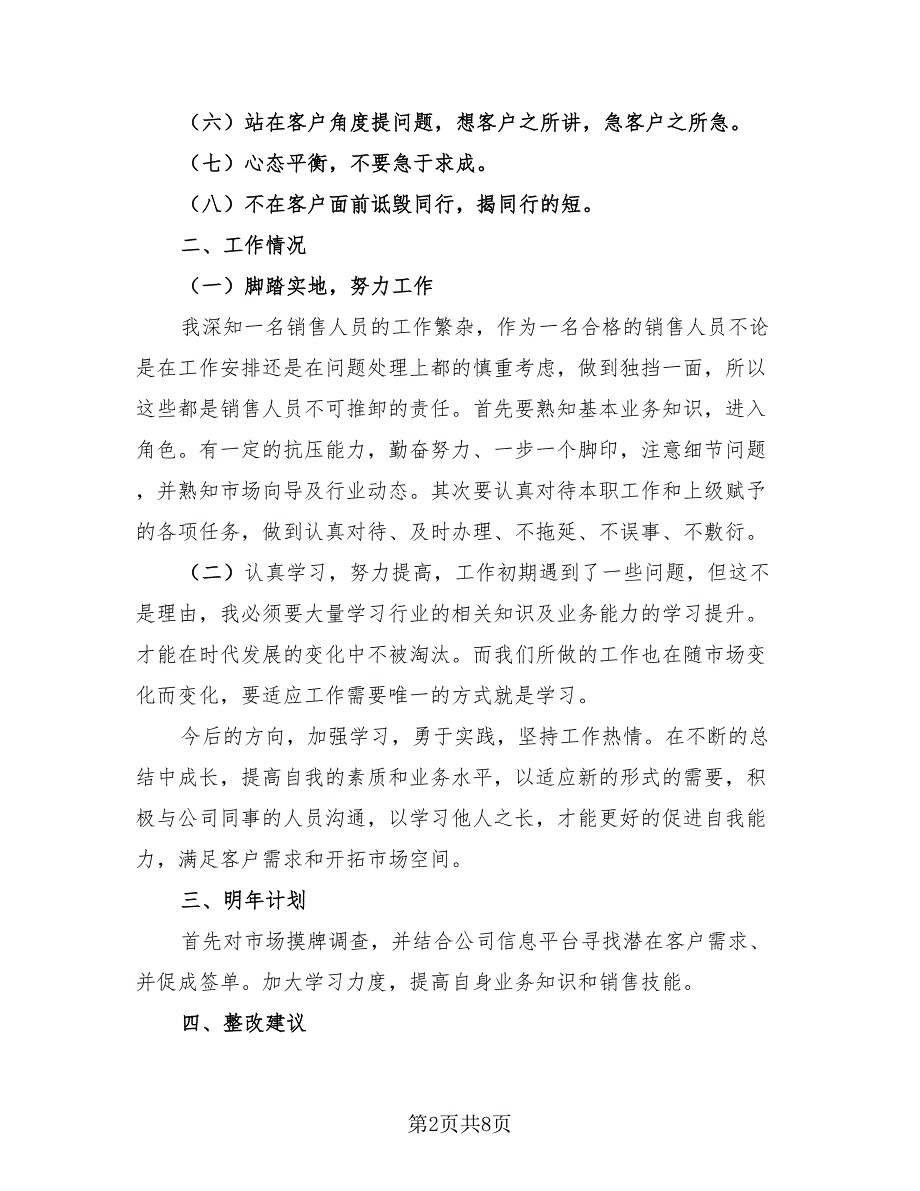 （六）站在客户角度提问题，想客户之所讲，急客户之所急。
（七）心态平衡，不要急于求成。
（八）不在客户面前诋毁同行，揭同行的短。
二、工作情况
（一）脚踏实地，努力工作
我深知一名销售人员的工作繁杂，作为一名合格的销售人员不论
是在工作安排还是在问题处理上都的慎重考虑，做到独挡一面，所以
这些都是销售人员不可推卸的责任。首先要熟知基本业务知识，进入
角色。有一定的抗压能力，勤奋努力、一步一个脚印，注意细节问题
，并熟知市场向导及行业动态。其次要认真对待本职工作和上级赋予
的各项任务，做到认真对待、及时办理、不拖延、不误事、不敷衍。
（二）认真学习，努力提高，工作初期遇到了一些问题，但这不
是理由，我必须要大量学习行业的相关知识及业务能力的学习提升。
才能在时代发展的变化中不被淘汰。而我们所做的工作也在随市场变
化而变化，要适应工作需要唯一的方式就是学习。
今后的方向，加强学习，勇于实践，坚持工作热情。在不断的总
结中成长，提高自我的素质和业务水平，以适应新的形式的需要，积
极与公司同事的人员沟通，以学习他人之长，才能更好的促进自我能
力，满足客户需求和开拓市场空间。
三、明年计划
首先对市场摸牌调查，并结合公司信息平台寻找潜在客户需求、
并促成签单。加大学习力度，提高自身业务知识和销售技能。
四、整改建议
第2页共8页